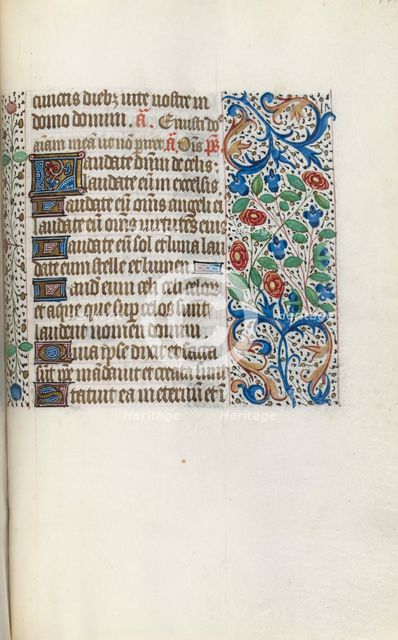 cunctis diebz vite nostre in
domo domini. a. Eruisti do
meā ut nō piret a Ois ps
Laudate dñm de celis
laudate eum in excelsis
Laudate eū om̄s angeli ei
laudate eū om̄s virtutes eius
Laudate eū sol et luna lau
date eum stelle et lumen
Laud eum celi celorz
et aque que sup celos sunt
laudent nomen domini
Quia ipse dixit et facta
sūt ipe mādavit et creata sunt
Statuit ea in eternū et ī
Heritage
Heritage